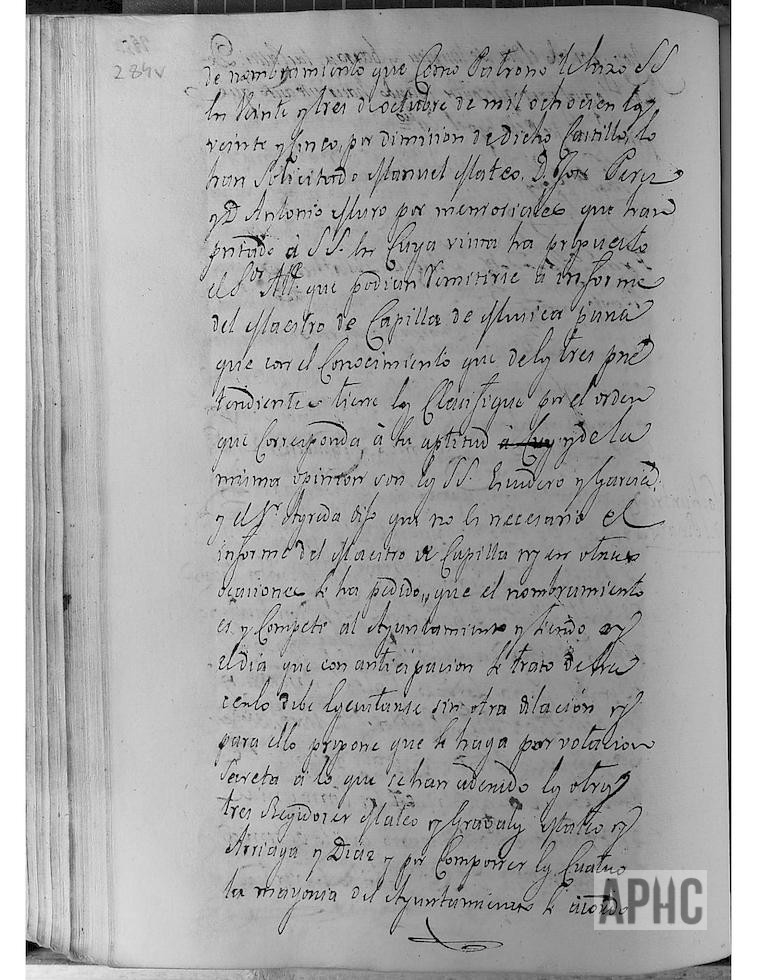 284v
de nombramiento que Como Patrono le hizo SS
In veinte y tres de octubre de mil ochocientos
veinte y Cinco, por dimision de dicho Castillo, lo
han Solicitado Manuel Mateo, D. Jose Perez
y D. Antonio Muro por memoriales que han
pntado á SS. In Cuya vista ha propuesto
el Sor. Alle. que podian Remitirse á informe
del Maestro de Capilla de Musica para
que con el Conocimiento que de los tres pre
tendientes tiene los Clasifique por el orden
que Corresponda á su aptitud y de la
misma opinion son los SS. Escudero y Garcia,
y el Sr. Agreda dijo que no es necesario el
informe del Maestro de Capilla ny en otras
ocasiones se ha pedido, que el nombramiento
es y Compete al Ayuntamiento y siendo oy
el dia que con anticipacion se trato de ha
cerlo debe egecutarse sin otra dilacion y
para ello propone que se haga por votacion
Secreta á lo que se han aderido los otros
tres Regidores Mateo y Mateo y
Arriaga y Diaz y por Componer los Cuatro
la mayoria del Ayuntamiento se acordó
APHC